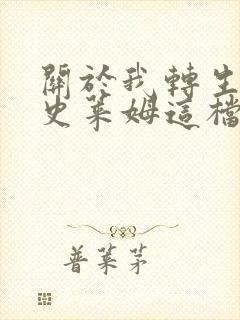 關於我轉生
史萊姆這檔
普萊茅